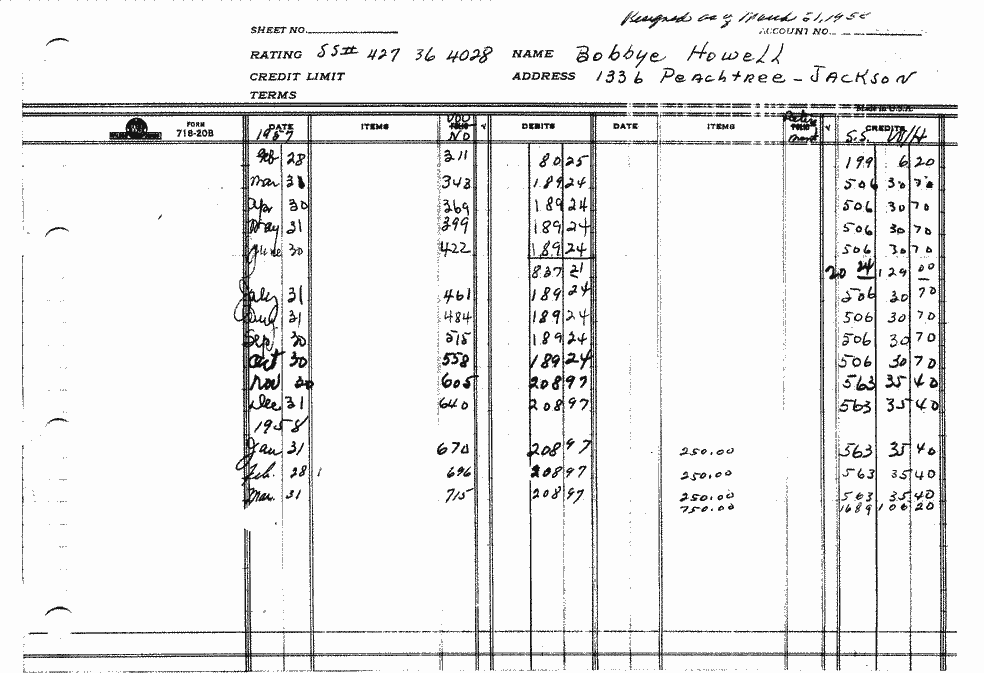 Resigned as of March 31, 1958
SHEET NO. ACCOUNT NO.
RATING SS# 427 36 4028 NAME Bobbye Howell
CREDIT LIMIT ADDRESS 1336 Peachtree - JACKSON
TERMS
MADE IN U.S.A.
FORM 718-20B DATE ITEMS VOU NO √ DEBITS DATE ITEMS √ CREDITS
1957 S.S. W/H
Feb 28 311 80 25 199 6 20
Mar 31 343 189 24 506 30 70
Apr 30 369 189 24 506 30 70
May 31 399 189 24 506 30 70
June 30 422 189 24 506 30 70
837 21 20 24 129 00
July 31 461 189 24 506 30 70
Aug 31 484 189 24 506 30 70
Sept 30 515 189 24 506 30 70
Oct 30 558 189 24 506 30 70
Nov 30 605 208 97 563 35 40
Dec 31 640 208 97 563 35 40
1958
Jan 31 670 208 97 250.00 563 35 40
Feb. 28 696 208 97 250.00 563 35 40
Mar. 31 715 208 97 250.00 563 35 40
750.00 1689 106 20